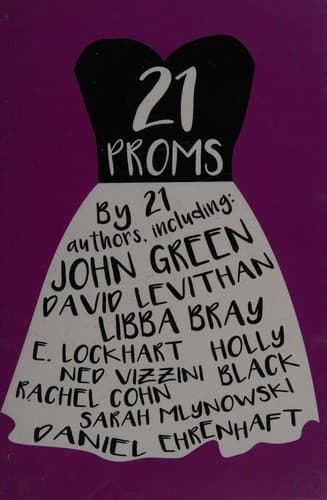 21
PROMS
By 21
authors, including:
JOHN GREEN
DAVID LEVITHAN
LIBBA BRAY
E. LOCKHART HOLLY
NED VIZZINI BLACK
RACHEL COHN
SARAH MLYNOWSKI
DANIEL EHRENHAFT